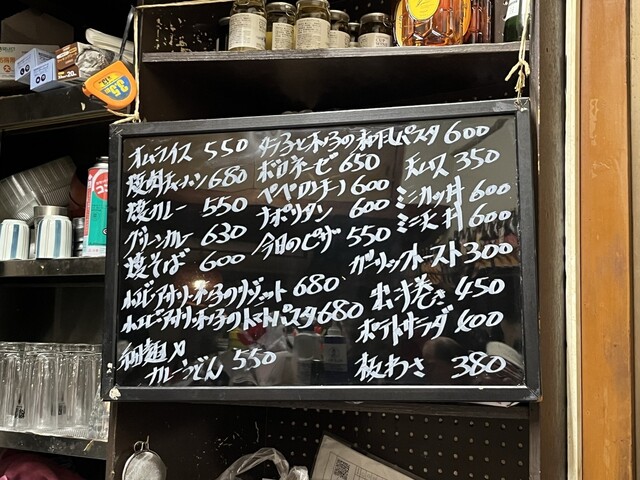 オムライス 550
焼肉チャーハン 680
焼カレー 550
グリーンカレー 630
焼そば 600
小エビ・アサリ・キノ子のリゾット 680
小エビ・アサリ・キノ子のトマトパスタ 680
細麺
カレーうどん 550
タラ子とキノ子の和風パスタ 600
ボロネーゼ 650
ペペロンチーノ 600
ナポリタン 600
今日のピザ 550
天ムス 350
ミニカツ丼 600
ミニ天丼 600
ガーリックトースト 300
出し汁巻き 450
ポテトサラダ 400
板わさ 380